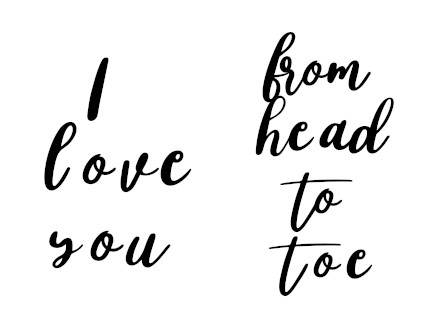 I
love
you
from
head
to
toe